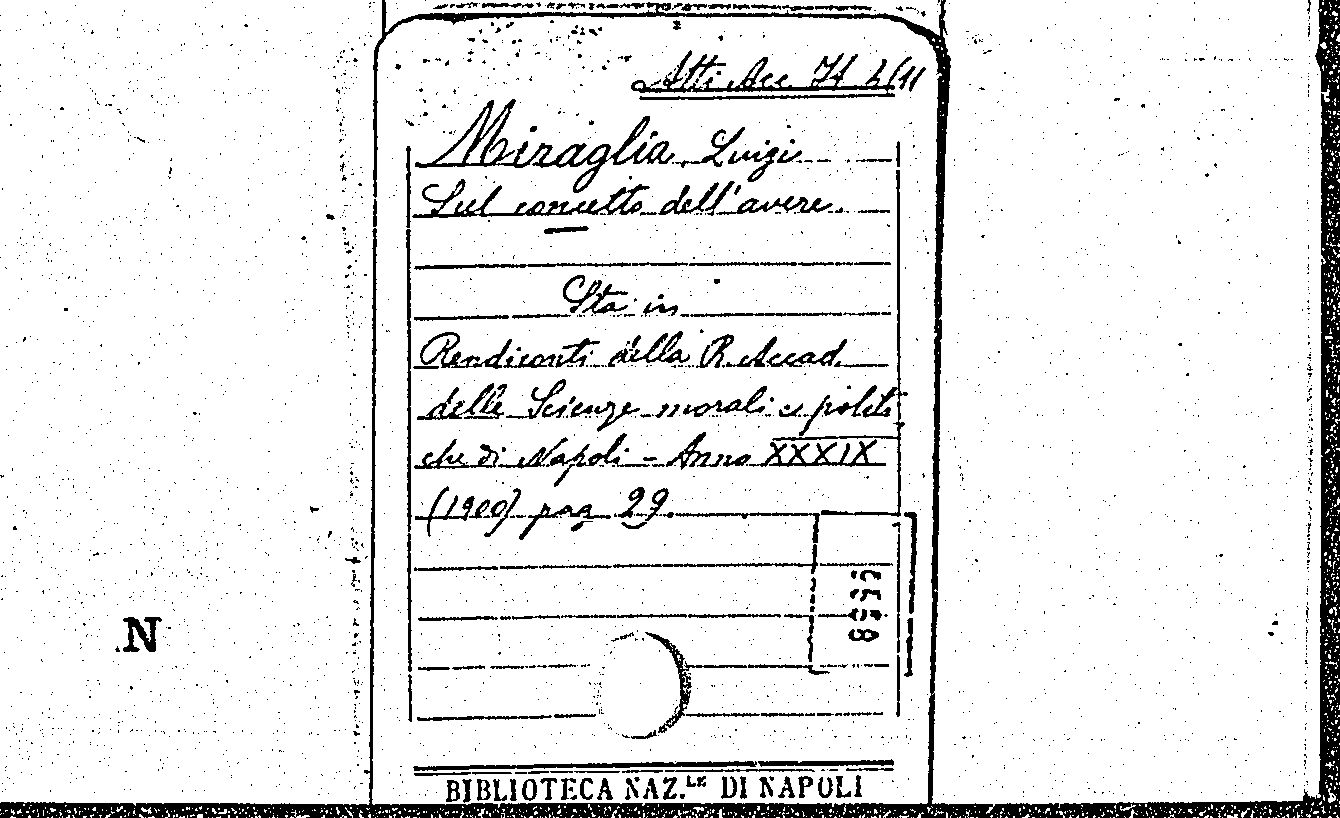 Atti Acc. It 4/11
Miraglia, Luigi
Sul concetto dell'avere.
Sta in
Rendiconti della R. Accad.
delle Scienze morali e politi
che di Napoli - Anno XXXIX
(1900) pag. 29.
N
BIBLIOTECA NAZ.LE DI NAPOLI